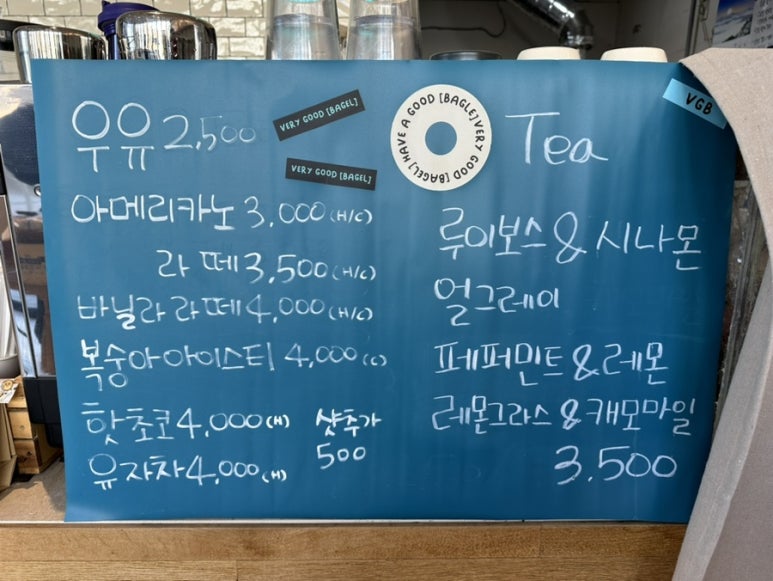 우유 2,500
VERY GOOD [BAGEL]
VERY GOOD [BAGEL]
아메리카노 3,000 (H/C)
라떼 3,500 (H/C)
바닐라 라떼 4,000 (H/C)
복숭아 아이스티 4,000 (C)
핫초코 4,000 (H)
유자차 4,000 (H)
샷추가
500
HAVE A GOOD [BAGLE] VERY GOOD [BAGEL]
VGB
Tea
루이보스 & 시나몬
얼그레이
페퍼민트 & 레몬
레몬그라스 & 캐모마일
3.500